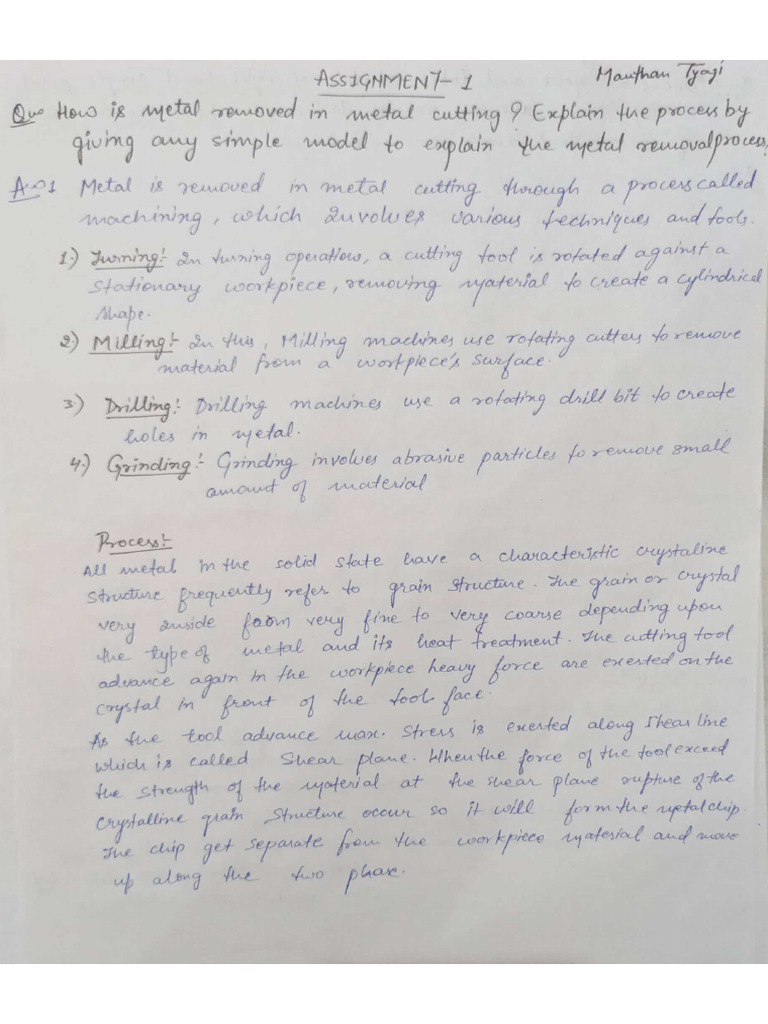 ASSIGNMENT- 1
Manthan Tyagi
Que How is metal removed in metal cutting? Explain the process by
giving any simple model to explain the metal removal process.
Ans1 Metal is removed in metal cutting through a process called
machining, which involves various techniques and tools.
1.) Turning:- In turning operation, a cutting tool is rotated against a
stationary workpiece, removing material to create a cylindrical
shape.
2.) Milling:- In this, Milling machines use rotating cutters to remove
material from a workpiece's surface.
3.) Drilling:- Drilling machines use a rotating drill bit to create
holes in metal.
4.) Grinding:- Grinding involves abrasive particles to remove small
amount of material
Process:-
All metal in the solid state have a characteristic crystaline
structure frequently refer to grain structure. The grain or crystal
very inside from very fine to very coarse depending upon
the type of metal and its heat treatment. The cutting tool
advance again in the workpiece heavy force are exerted on the
crystal in front of the tool face.
As the tool advance max. stress is exerted along shear line
which is called shear plane. When the force of the tool exceed
the strength of the material at the shear plane rupture of the
crystalline grain structure occur so it will form the metal chip.
The chip get separate from the workpiece material and move
up along the two phase.